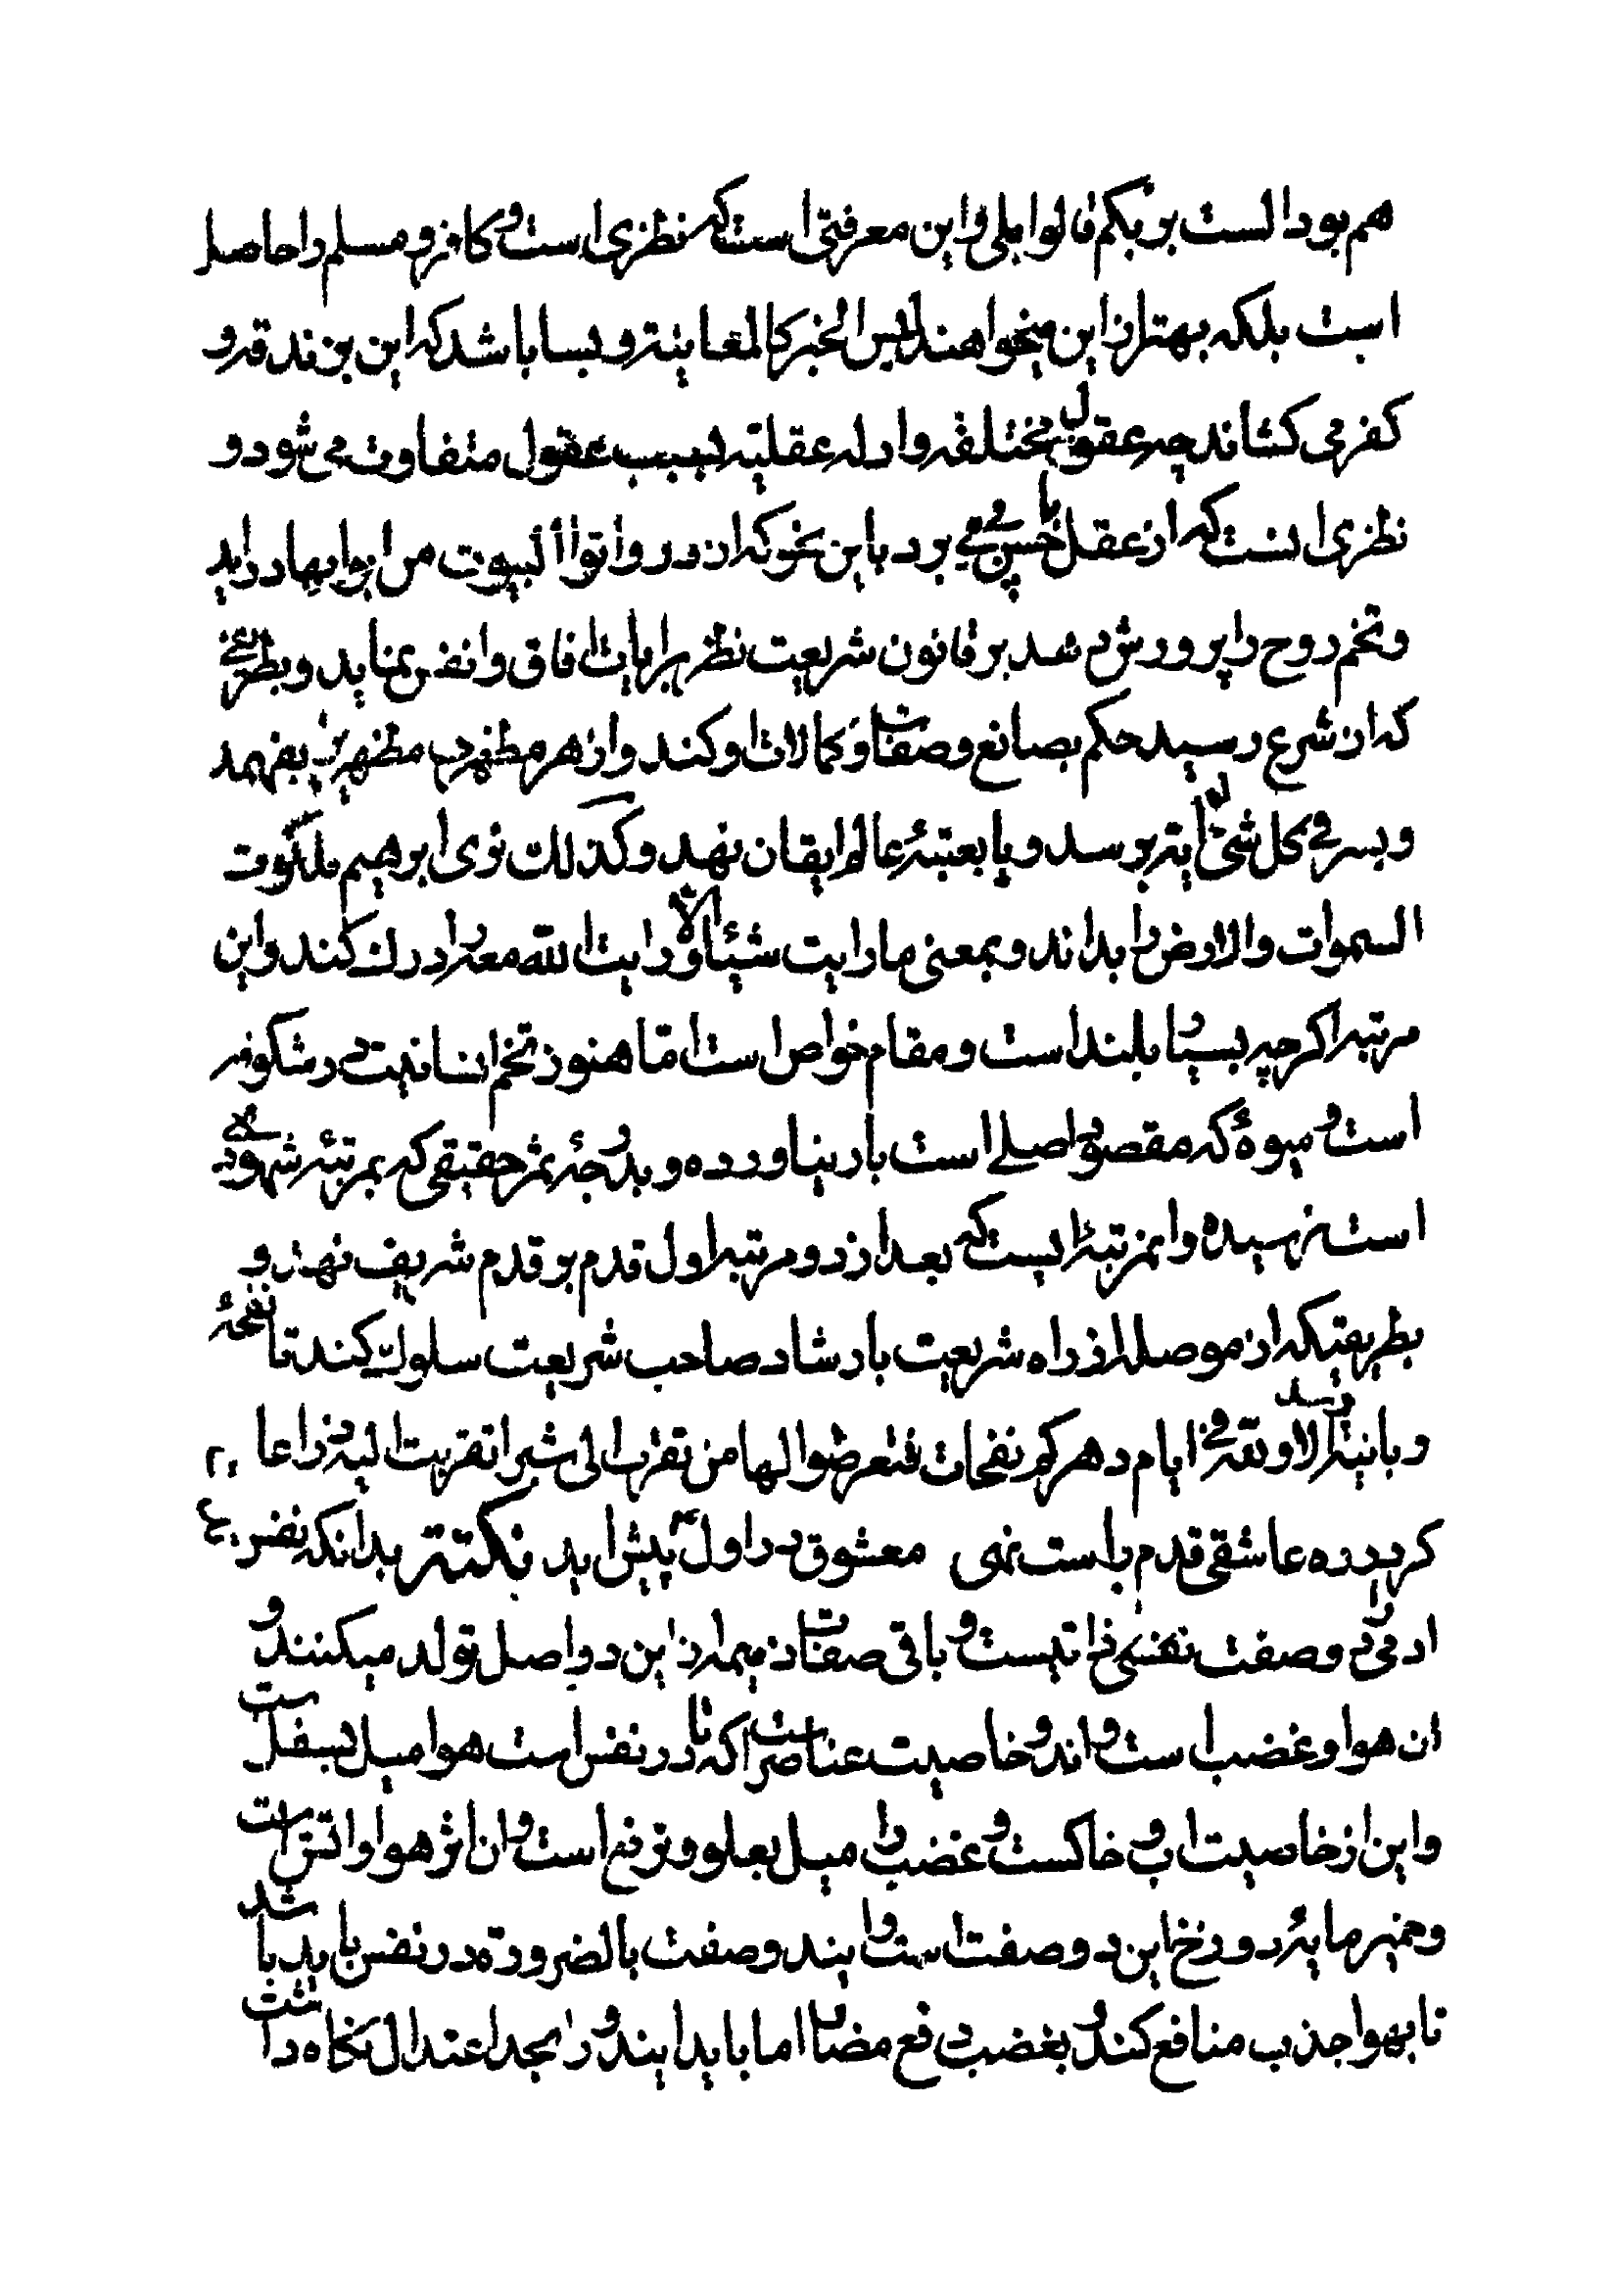 هم بود الست بربکم قالوا بلی و این معرفتی است که نظری است و کافر و مسلم را حاصل
است بلکه بهتر از این میخواهند لیس الخبر کالمعاینة و بسا باشد که این بزندقه و
کفر می کشاند چه عقول مختلفه و ادله عقلیه بسبب عقول متفاوت می شود و
نظری انست که از عقل با حس پی می برد باین نحو که از در و اتوا البیوت من ابوابها در اید
و تخم روح را پرورش دهد بر قانون شریعت نظر برایات افاق و انفس بنماید و بطریقی
که از شرع رسید حکم بصانع و صفات و کمالات او کند و از هر مظهر دید مظهریت بفهمد
و بسر فی کل شئ له ایة برسد و پا بعتبهٔ عالم ایقان نهد و کذلک نری ابرهیم ملکوت
السموات والارض را بداند و بمعنی ما رایت شیئا الا و رایت الله معه را درک کند و این
مرتبه اکرچه بسیار بلند است و مقام خواص است اما هنوز تخم انسانیت در شکوفه
است و میوهٔ که مقصود اصلے است بار نیاورده و بدرجهٔ ثمر حقیقی که بمرتبهٔ شهودی
است نرسیده و انمرتبهٔ ایست که بعد از دو مرتبه اول قدم بر قدم شریف نهد و
بطریقیکه از موصله از راه شریعت بارشاد صاحب شریعت سلوک کند تا نفحهٔ
ربانیه رسد الا و لله فی ایام دهرکم نفحات فتعرضوا لها من تقرب الی شبرا تقربت الیه ذراعا
کر در ره عاشقی قدم راست نهی معشوق در اول پیش اید نکتة بدانکه نفس
ادمی را دو صفت نفسی ذاتیست و باقی صفات ذمیمه از این دو اصل تولد میکنند و
ان هوا و غضب است و اندو خاصیت عناصر است که در نفس است هوا میل بسفل است
و این از خاصیت اب و خاکست و غضب را میل بعلو و ترفع است و ان اثر هوا و اتش است
و خمیر مایهٔ دوزخ این دو صفت است و ایندو صفت بالضرورة در نفس باید باشد
تا بهوا جذب منافع کند و بغضب دفع مضار اما باید ایندو را بحد اعتدال نکاه داشت